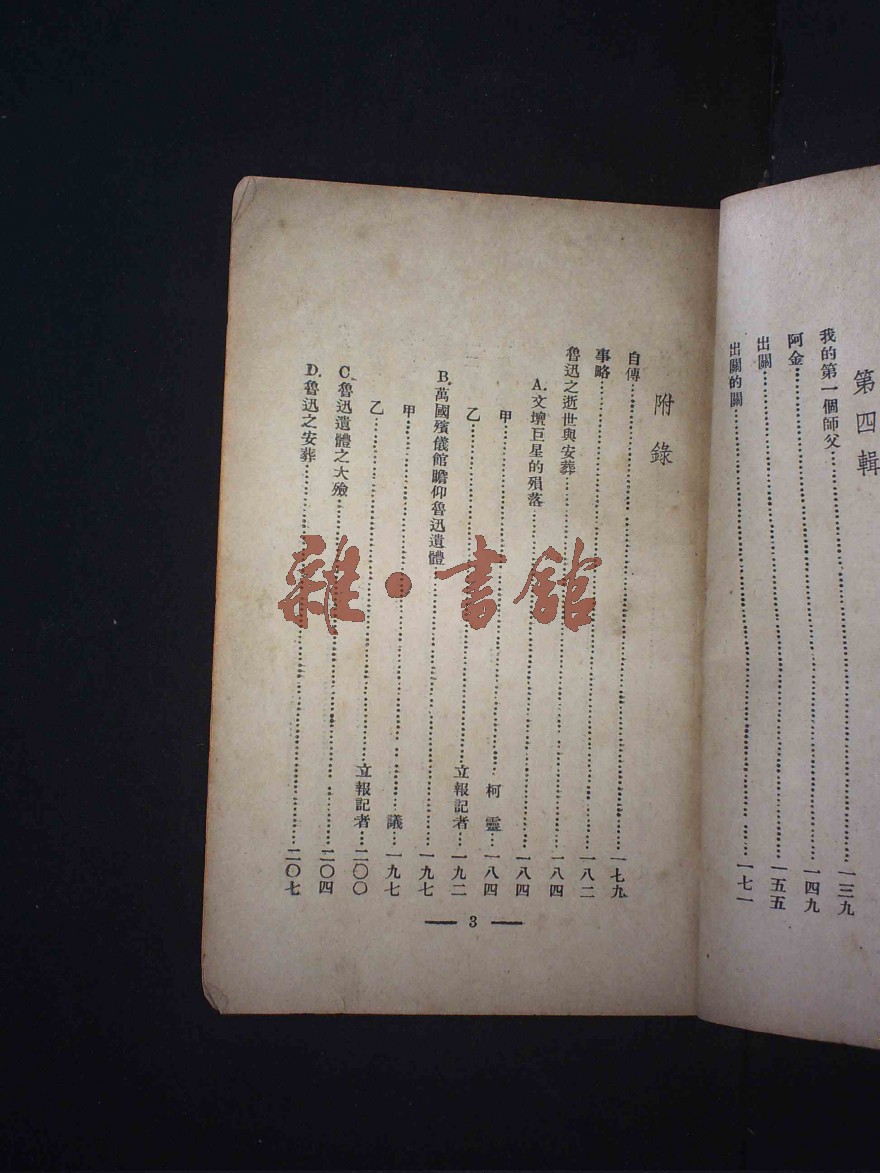 第四輯
我的第一個師父……一三九
阿金……一四九
出關……一五五
出關的關……一七一
附錄
自傳……一七九
事略……一八二
魯迅之逝世與安葬……一八四
A.文壇巨星的殞落……一八四
甲……柯靈……一八四
乙……立報記者……一九二
B.萬國殯儀館瞻仰魯迅遺體……一九七
甲……議……一九七
乙……立報記者……二〇〇
C.魯迅遺體之大殮……二〇四
D.魯迅之安葬……二〇七
— 3 —
雜·書館